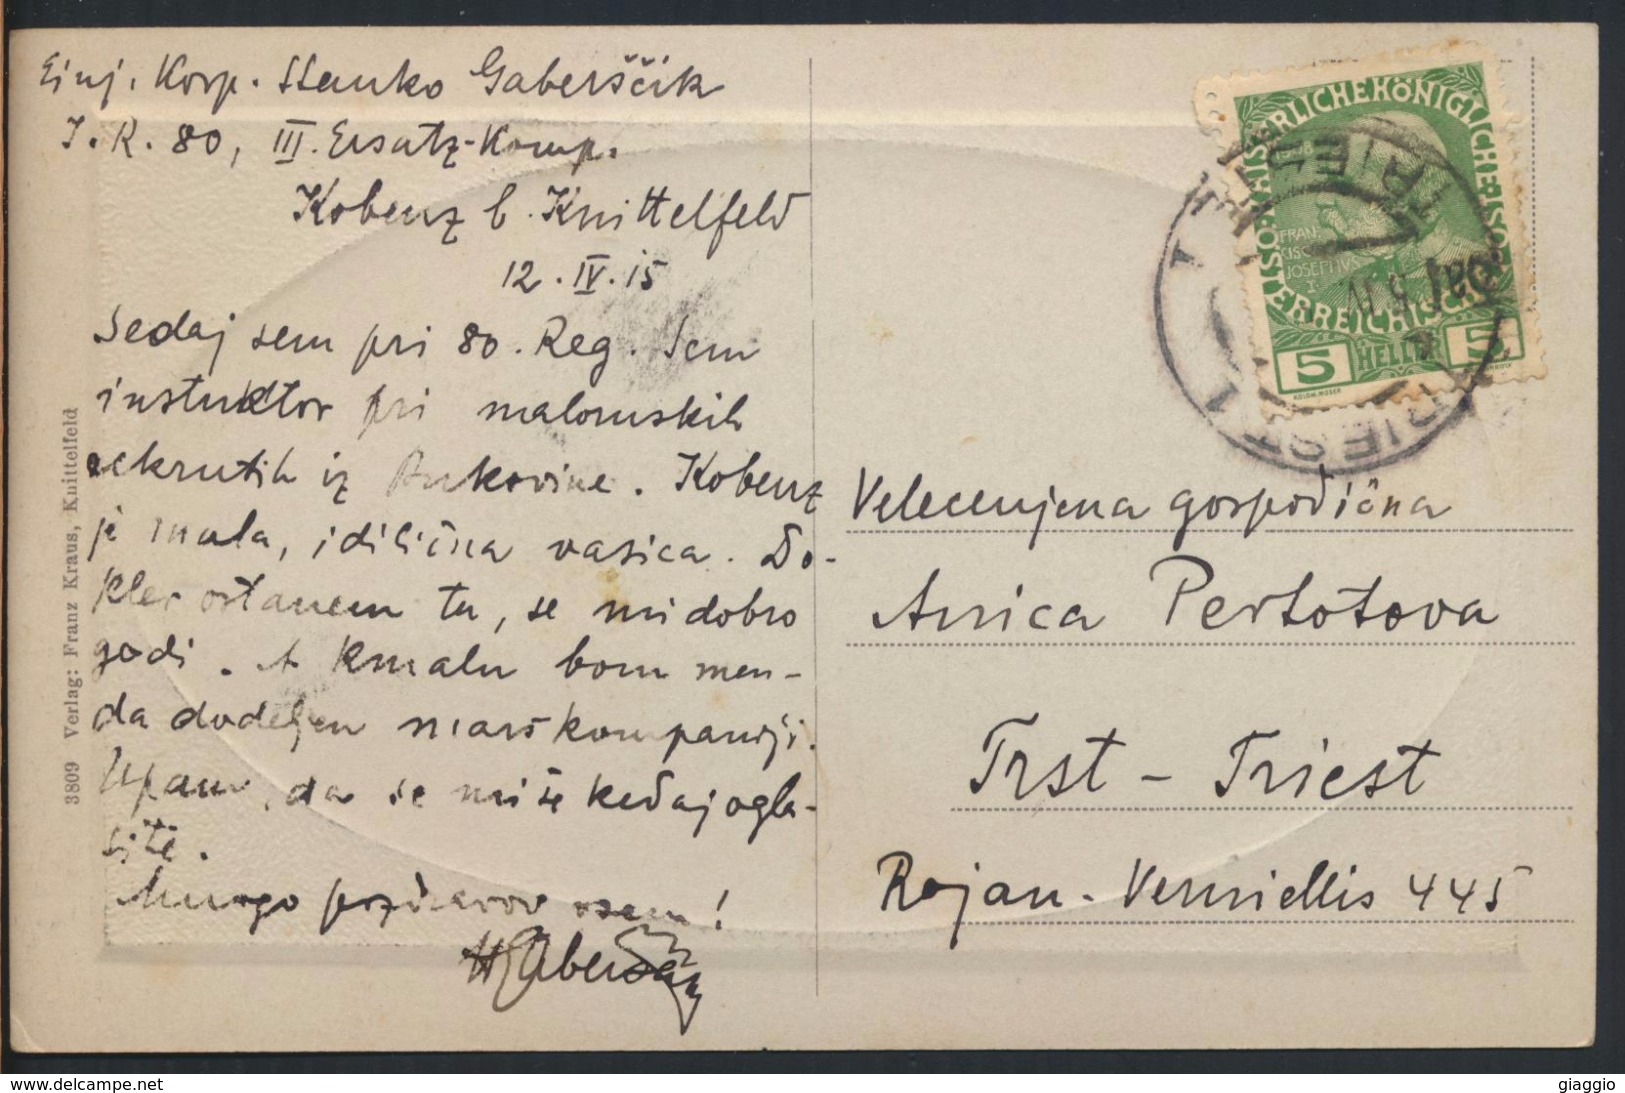 Einj. Korp. Stanko Gaberščik
I. R. 80, III. Ersatz-Komp.
Kobenz b. Knittelfeld
12. IV. 15
Sedaj sem pri 80. Reg. Sem
instruktor pri maloruskih
rekrutih iz Bukovine. Kobenz
je mala, idilična vasica. Do-
kler ostanem tu, se mi dobro
godi. A kmalu bom men-
da dodeljen marškompaniji.
Upam, da se mi še kedaj ogla-
site.
Mnogo pozdravov vsem!
Gaberščik
3809 Verlag: Franz Kraus, Knittelfeld
KAISERLICHE KÖNIGLICHE ÖSTERREICHISCHE
1908
FRAN
CISCVS
JOSEPHVS
I
5 HELLER 5
KOLOM. MOSER
TRIEST 1
Velecenjena gospodična
Anica Pertotova
Trst - Triest
Rojan - Vernielis 445
delcampe.net
giaggio